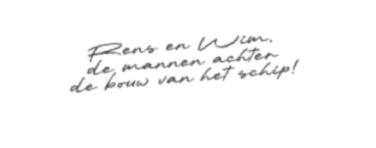 Rens en Wim,
de mannen achter
de bouw van het schip!